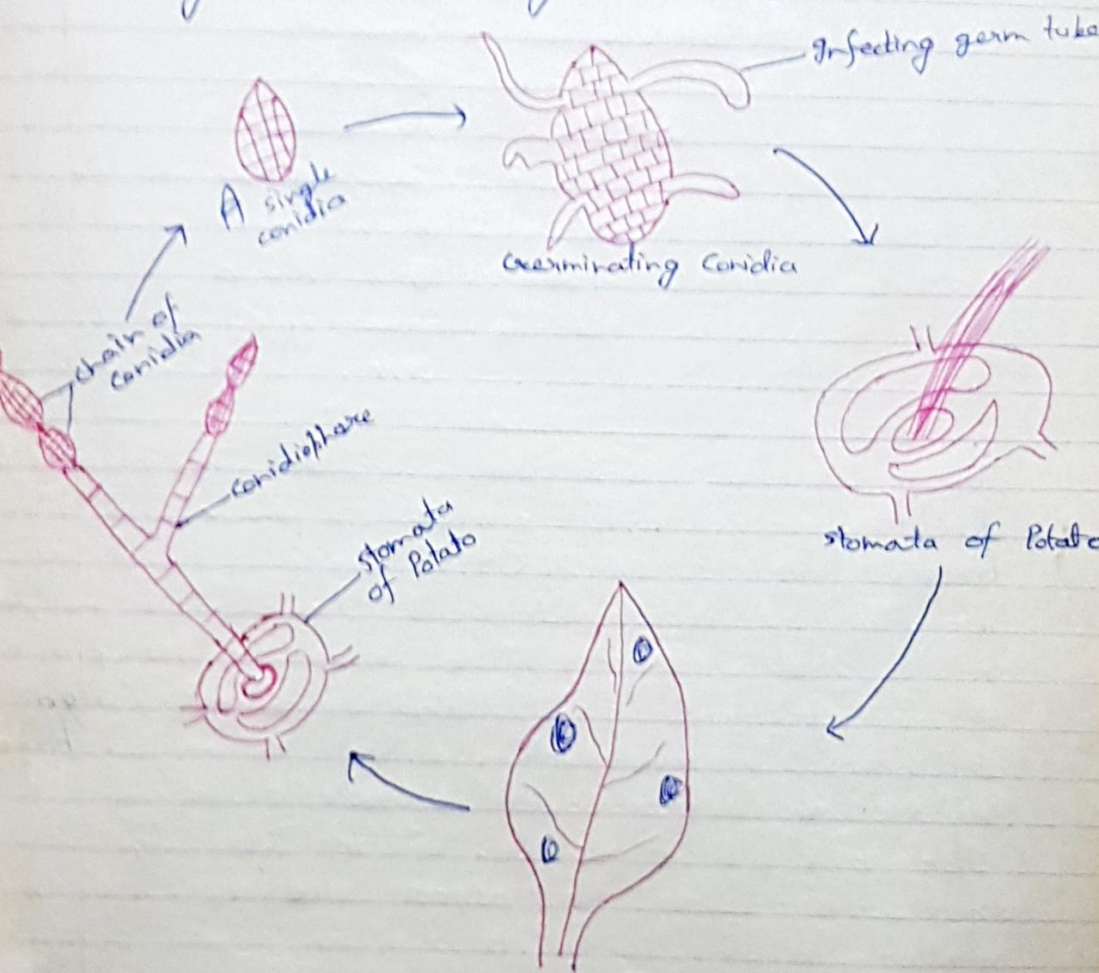 Infecting germ tube
A single
conidia
Germinating Conidia
chain of
conidia
conidiophore
stomata
of Potato
stomata of Potato